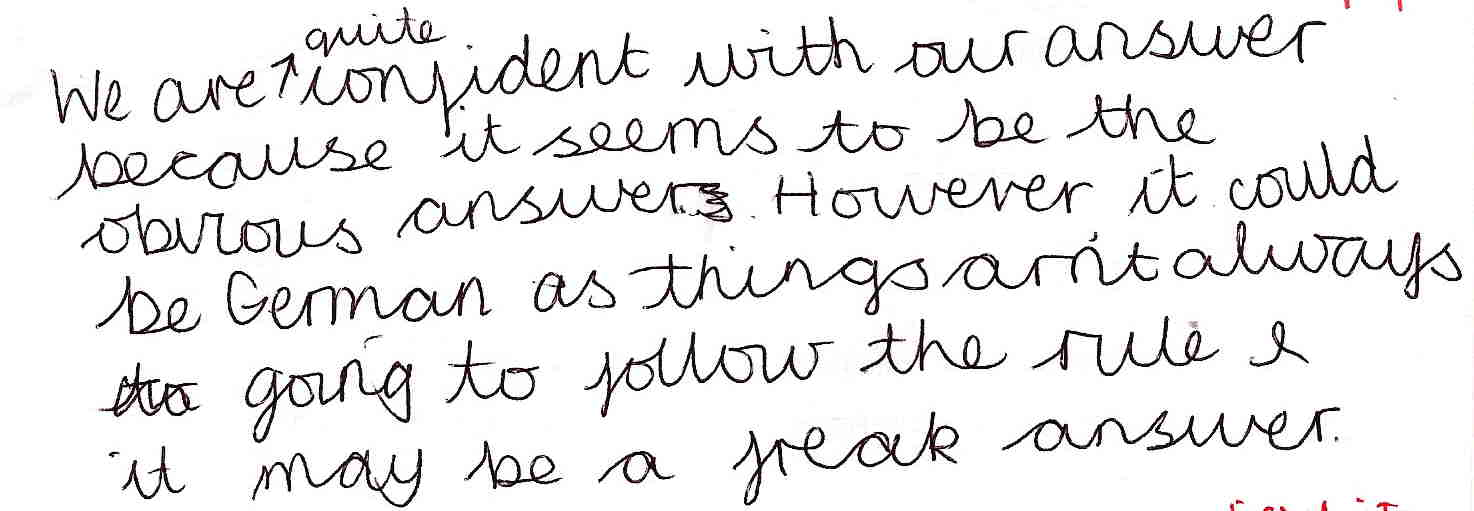 We are quite confident with our answer
because it seems to be the
obvious answer. However it could
be German as things arn't always
going to follow the rule &
it may be a freak answer.